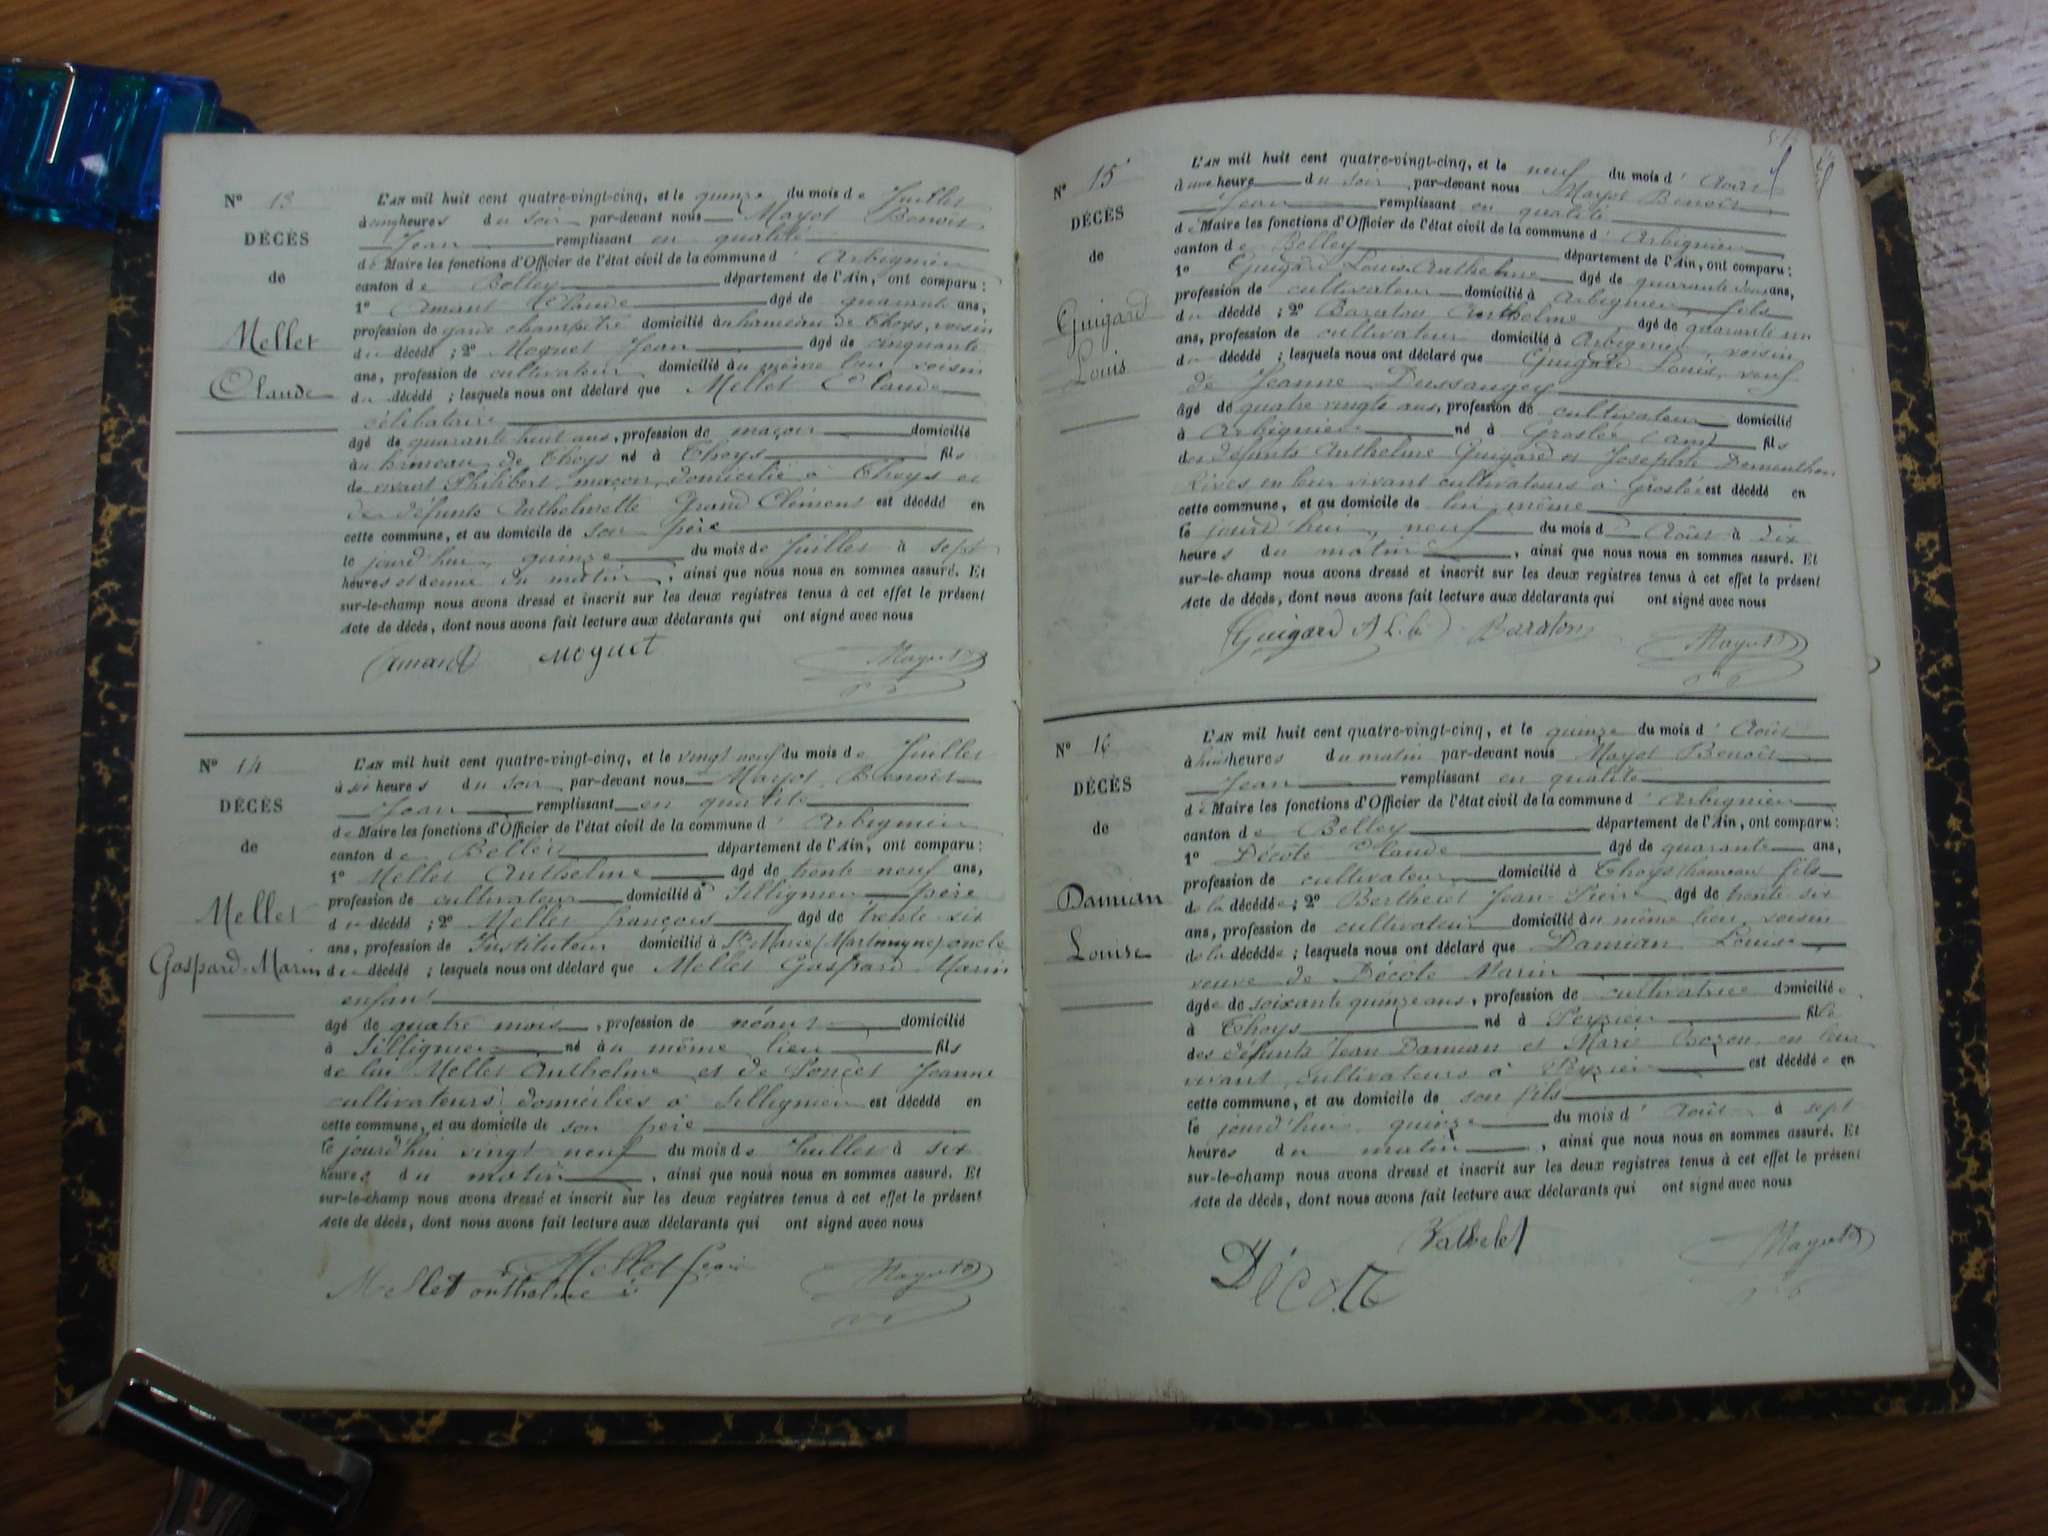 N° 13
DÉCÈS
de
Mellet
Claude
L'AN mil huit cent quatre-vingt-cinq, et le quinze du mois de Juillet
à cinq heures du soir par-devant nous Mayot Benoît
Jean remplissant en qualité
de Maire les fonctions d'Officier de l'état civil de la commune d' Arbignieu
canton de Belley département de l'Ain, ont comparu :
1° Amant Claude âgé de quarante ans,
profession de garde champêtre domicilié au hameau de Thoys, voisin
du décédé ; 2° Moguet Jean âgé de cinquante
ans, profession de cultivateur domicilié au même lieu voisin
du décédé ; lesquels nous ont déclaré que Mellet Claude
célibataire
âgé de quarante huit ans, profession de maçon domicilié
au hameau de Thoys né à Thoys fils
de vivant Philibert, maçon, domicilié à Thoys et
de défunte Anthelmette Grand Clément est décédé en
cette commune, et au domicile de son père
le jourd'hui quinze du mois de Juillet à sept
heures et demie du matin, ainsi que nous nous en sommes assuré. Et
sur-le-champ nous avons dressé et inscrit sur les deux registres tenus à cet effet le présent
Acte de décès, dont nous avons fait lecture aux déclarants qui ont signé avec nous
Amand Moguet Mayot B
N° 14
DÉCÈS
de
Mellet
Gaspard-Marin
L'AN mil huit cent quatre-vingt-cinq, et le vingt neuf du mois de Juillet
à six heures du soir par-devant nous Mayot Benoît
Jean remplissant en qualité
de Maire les fonctions d'Officier de l'état civil de la commune d' Arbignieu
canton de Belley département de l'Ain, ont comparu :
1° Mellet Anthelme âgé de trente-neuf ans,
profession de cultivateur domicilié à Sillignieu père
du décédé ; 2° Mellet françois âgé de trente six
ans, profession de Instituteur domicilié à Ste Marie (Martinique) oncle
du décédé ; lesquels nous ont déclaré que Mellet Gaspard-Marin
enfant
âgé de quatre mois, profession de néant domicilié
à Sillignieu né au même lieu fils
de lui Mellet Anthelme et de Poncet Jeanne
cultivateurs domiciliés à Sillignieu est décédé en
cette commune, et au domicile de son père
le jourd'hui vingt neuf du mois de Juillet à six
heures du matin, ainsi que nous nous en sommes assuré. Et
sur-le-champ nous avons dressé et inscrit sur les deux registres tenus à cet effet le présent
Acte de décès, dont nous avons fait lecture aux déclarants qui ont signé avec nous
Mellet
Mellet anthelme Mayot B
N° 15
DÉCÈS
de
Guigard
Louis
L'AN mil huit cent quatre-vingt-cinq, et le neuf du mois d' Août
à une heure du soir, par-devant nous Mayot Benoît
Jean remplissant en qualité
de Maire les fonctions d'Officier de l'état civil de la commune d' Arbignieu
canton de Belley département de l'Ain, ont comparu :
1° Guigard Louis Anthelme âgé de quarante deux ans,
profession de cultivateur domicilié à Arbignieu, fils
du décédé ; 2° Baraton Anthelme âgé de quarante un
ans, profession de cultivateur domicilié à Arbignieu, voisin
du décédé ; lesquels nous ont déclaré que Guigard Louis, veuf
de Jeanne Dussaugey
âgé de quatre vingts ans, profession de cultivateur domicilié
à Arbignieu né à Groslée (ain) fils
des défunts Anthelme Guigard et Josephte
en leur vivant cultivateurs à Groslée est décédé en
cette commune, et au domicile de lui-même
le jourd'hui, neuf du mois d' Août à dix
heures du matin, ainsi que nous nous en sommes assuré. Et
sur-le-champ nous avons dressé et inscrit sur les deux registres tenus à cet effet le présent
Acte de décès, dont nous avons fait lecture aux déclarants qui ont signé avec nous
Guigard Baraton Mayot B
N° 16
DÉCÈS
de
Damian
Louise
L'AN mil huit cent quatre-vingt-cinq, et le quinze du mois d' Août
à huit heures du matin par-devant nous Mayot Benoît
Jean remplissant en qualité
de Maire les fonctions d'Officier de l'état civil de la commune d' Arbignieu
canton de Belley département de l'Ain, ont comparu :
1° Décote Claude âgé de quarante ans,
profession de cultivateur domicilié à Thoys hameau fils
de la décédée ; 2° Berthelet Jean-Pierre âgé de trente six
ans, profession de cultivateur domicilié au même lieu, voisin
de la décédée ; lesquels nous ont déclaré que Damian Louise
veuve de Décote Marin
âgée de soixante quinze ans, profession de cultivatrice domiciliée
à Thoys né à Peyzieu fille
des défunts Jean Damian et Marie Bozon en leur
vivant cultivateurs à Peyzieu est décédée en
cette commune, et au domicile de son fils
le jourd'hui quinze du mois d' Août à sept
heures du matin, ainsi que nous nous en sommes assuré. Et
sur-le-champ nous avons dressé et inscrit sur les deux registres tenus à cet effet le présent
Acte de décès, dont nous avons fait lecture aux déclarants qui ont signé avec nous
Décote Mayot B